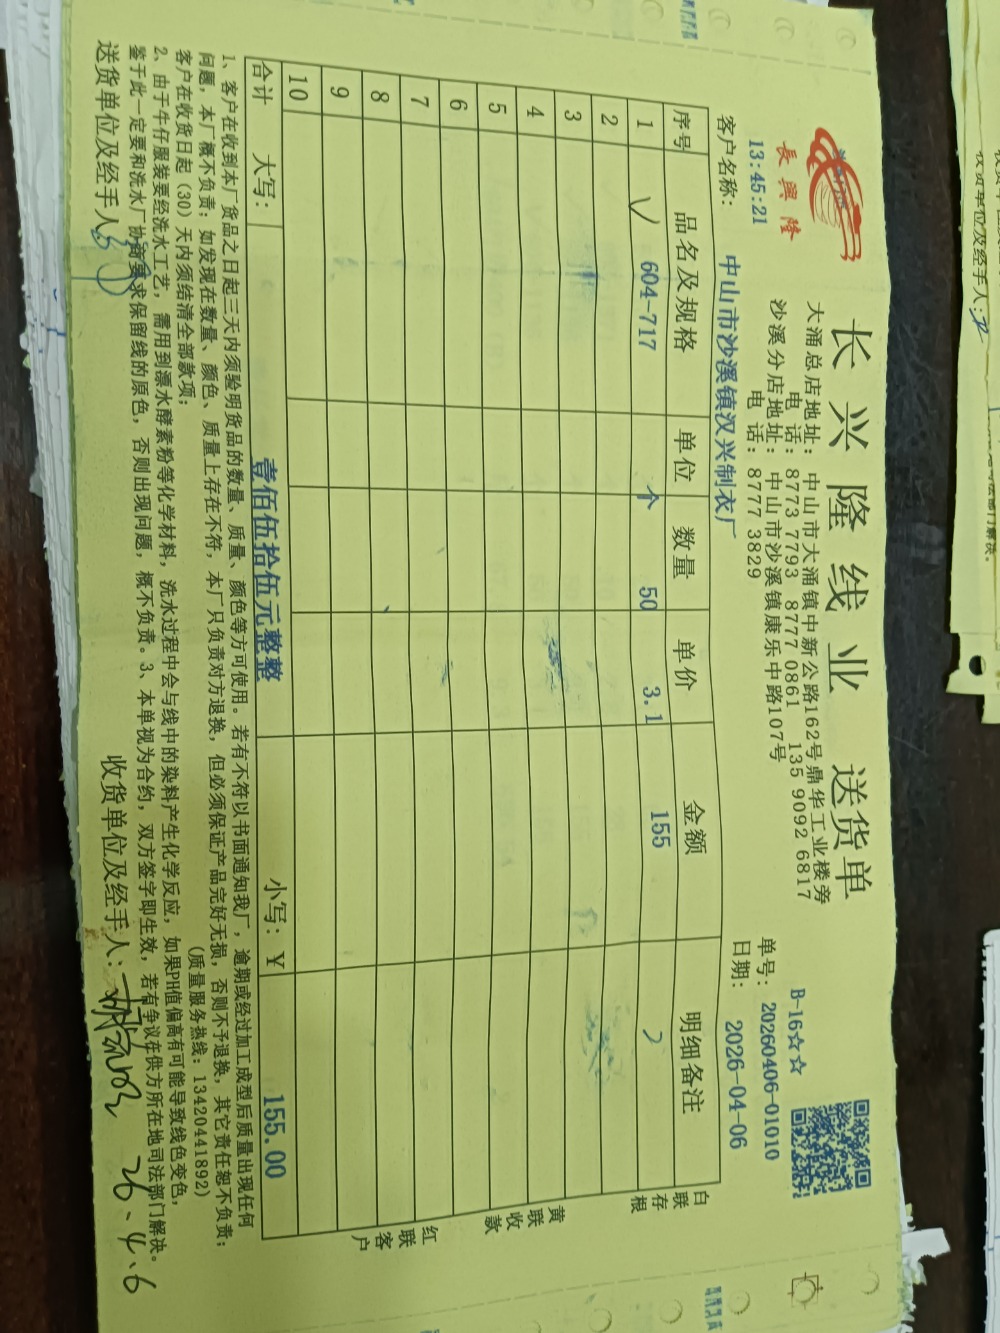 長興隆
长兴隆线业 送货单
大涌总店地址: 中山市大涌镇中新公路162号鼎华工业楼旁
电 话: 8773 7793 8777 0861 135 9092 6817
沙溪分店地址: 中山市沙溪镇康乐中路107号
电 话: 8777 3829
B-16☆☆
单号: 20260406-01010
日期: 2026-04-06
13:45:21
客户名称: 中山市沙溪镇汉兴制衣厂
序号 品名及规格 单位 数量 单价 金额 明细备注
1 604-717 个 50 3.1 155
2
3
4
5
6
7
8
9
10
合计 大写: 壹佰伍拾伍元整整 小写: ¥ 155.00
白联存根
黄联收款
红联客户
1、客户在收到本厂货品之日起三天内须验明货品的数量、质量、颜色等方可使用。若有不符以书面通知我厂，逾期或经过加工成型后质量出现任何
问题，本厂概不负责；如发现在数量、颜色、质量上存在不符，本厂只负责对方退换，但必须保证产品完好无损，否则不予退换，其它责任恕不负责；
客户在收货日起（30）天内须结清全部款项； (质量服务热线: 13420441892)
2、由于牛仔服装要经洗水工艺，需用到漂水酵素粉等化学材料，洗水过程中会与线中的染料产生化学反应，如果PH值偏高有可能导致线色变色，
鉴于此一定要和洗水厂协商要求保留线的原色，否则出现问题，概不负责。3、本单视为合约，双方签字即生效，若有争议在供方所在地司法部门解决。
送货单位及经手人: 收货单位及经手人: 26.4.6
收货单位及经手人: